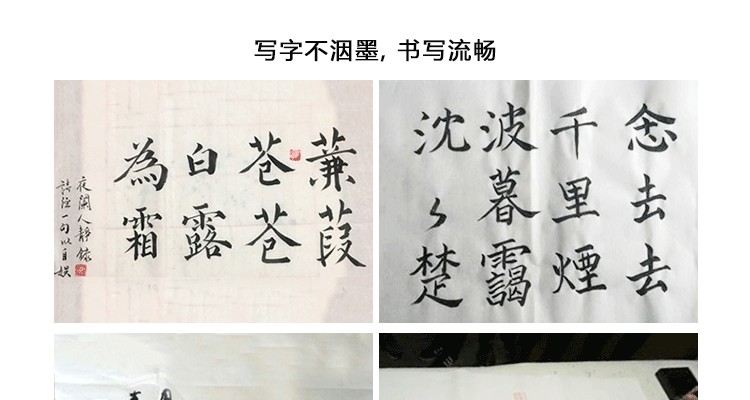 写字不洇墨, 书写流畅
蒹葭
苍苍
白露
為霜
夜闌人靜錄
詩經一句以自娛
念去去
千里煙
波暮靄
沈〻楚